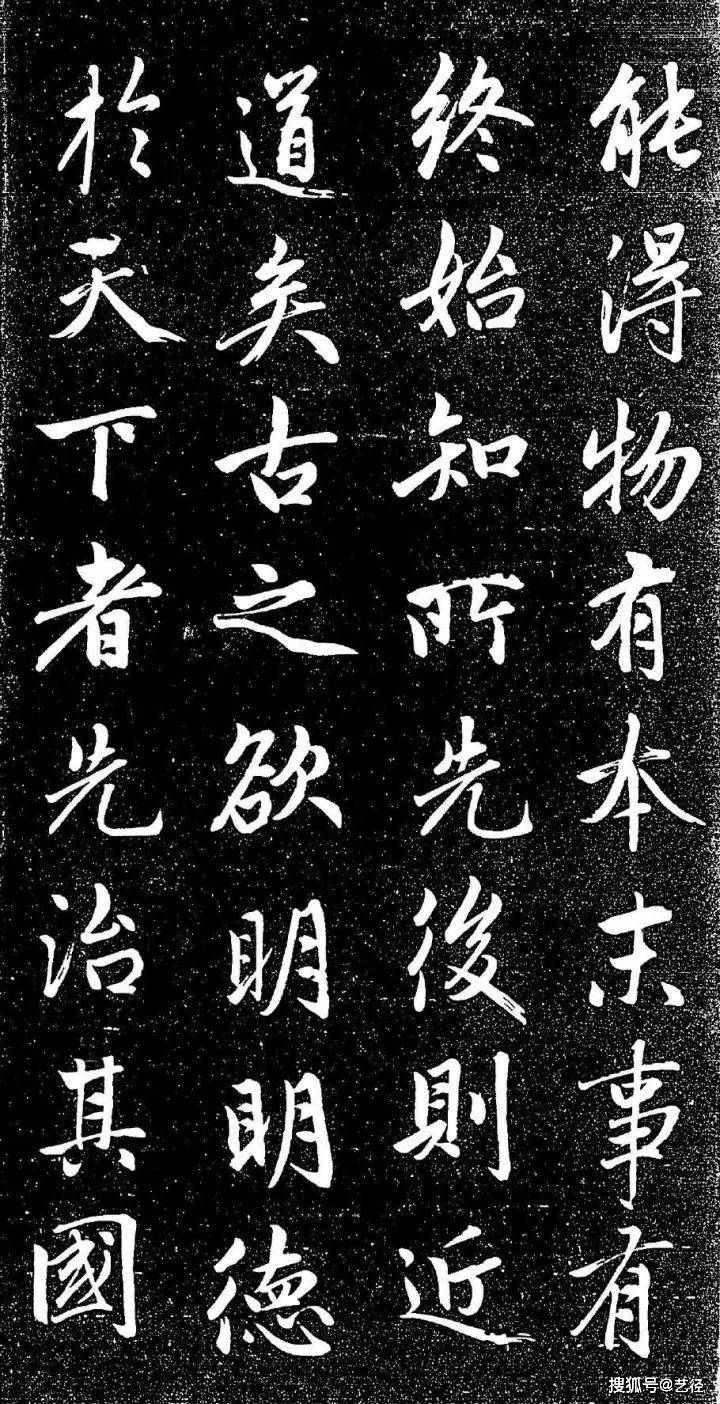 能得物有本末事有
終始知所先後則近
道矣古之欲明明德
於天下者先治其國
搜狐号@艺径